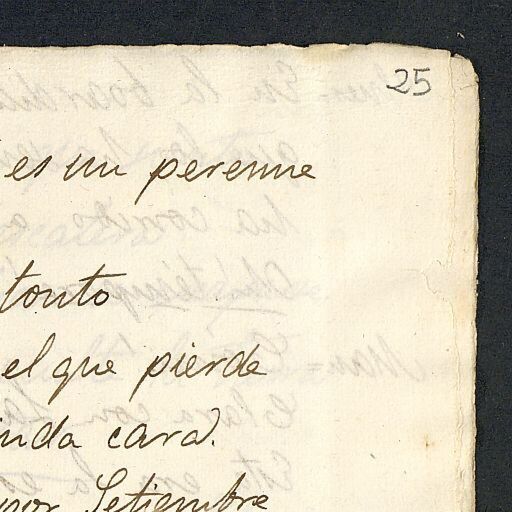 25
es un perenne
tonto
el que pierde
inda cara.
por Setiembre